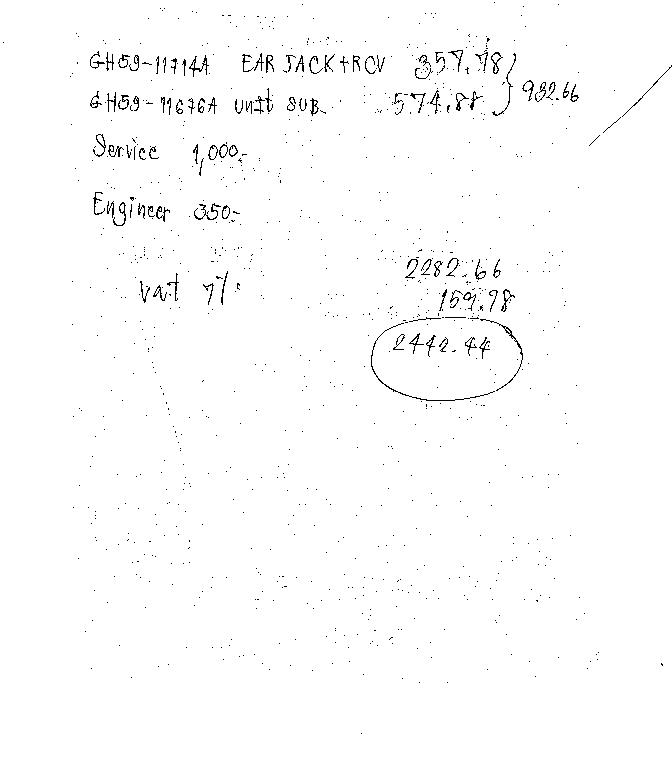 GH59-11714A EAR JACK+RCV 357.78
GH59-11676A Unit SUB. 574.88 } 932.66
Service 1,000.-
Engineer 350.-
2282.66
Vat 7% 159.78
2442.44